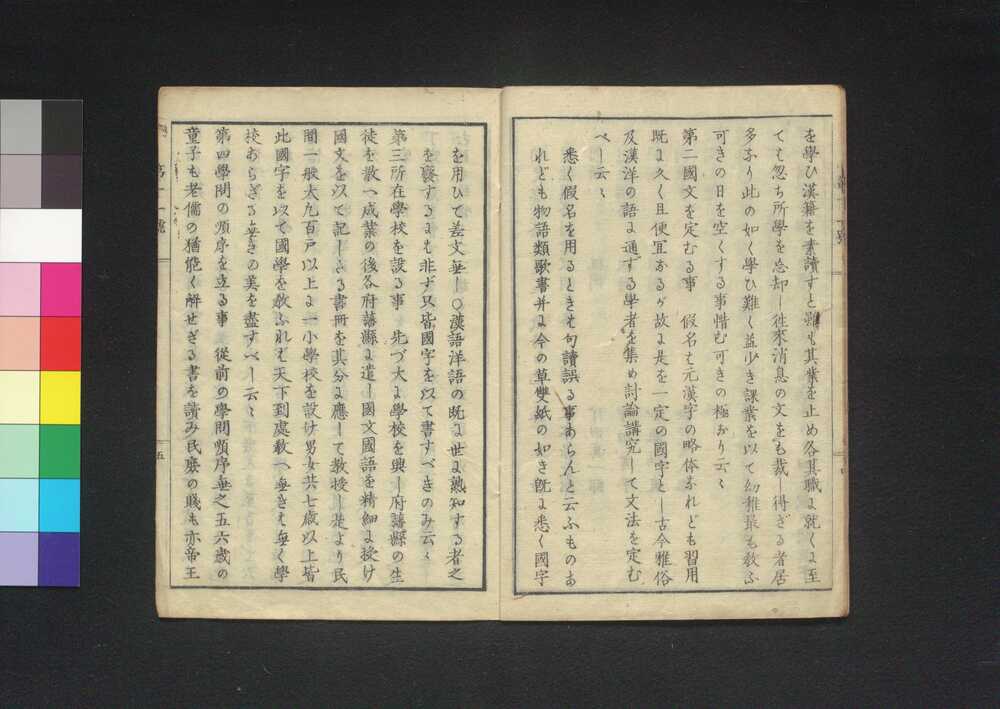 を學ひ漢籍を素讀すと雖も其業を止め各其職よ就くよ至
ても忽ち所學を忘却し徃來消息の文をも裁し得ざる者居
多なり此の如く學ひ難く益少き課業を以て幼稚最も教ふ
可きの日を空くする事惜む可きの極なり云〻
第二國文を定むる事 假名も元漢字の略体なれども習用
既よ久く且便宜なるが故よ是を一定の國字とし古今雅俗
及漢洋の語よ通ずる學者を集め討論講究して文法を定む
べし云〻
悉く假名を用るときも句讀誤る事あらんと云ふものあ
れども物語類歌書并よ今の草雙紙の如き既よ悉く國字
を用ひて差文無し〇漢語洋語の既よ世よ熟知する者之
を襃するよも非ず只皆國字を以て書すべきのみ云〻
第三所在學校を設る事 先づ大よ學校を興し府藩縣の生
徒を教へ成業の後各府藩縣よ遣し國文國語を精細よ授け
國文を以て記したる書冊を其分よ應して教授し是より民
間一般大凡百戸以上よ一小學校を設け男女共七歳以上皆
此國字を以て國學を教ふれむ天下到處教へ無きも無く學
校あらざる無きの美を盡すべし云〻
第四學問の順序を立る事 從前の學問順序無之五六歳の
童子も老儒の猶能く解せざる書を讀み民庶の賤も亦帝王
第十一號
五